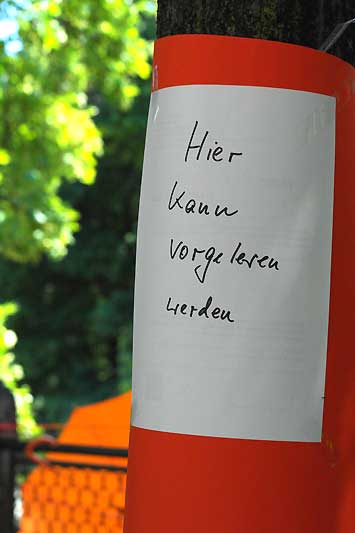 Hier
kann
vorgelesen
werden